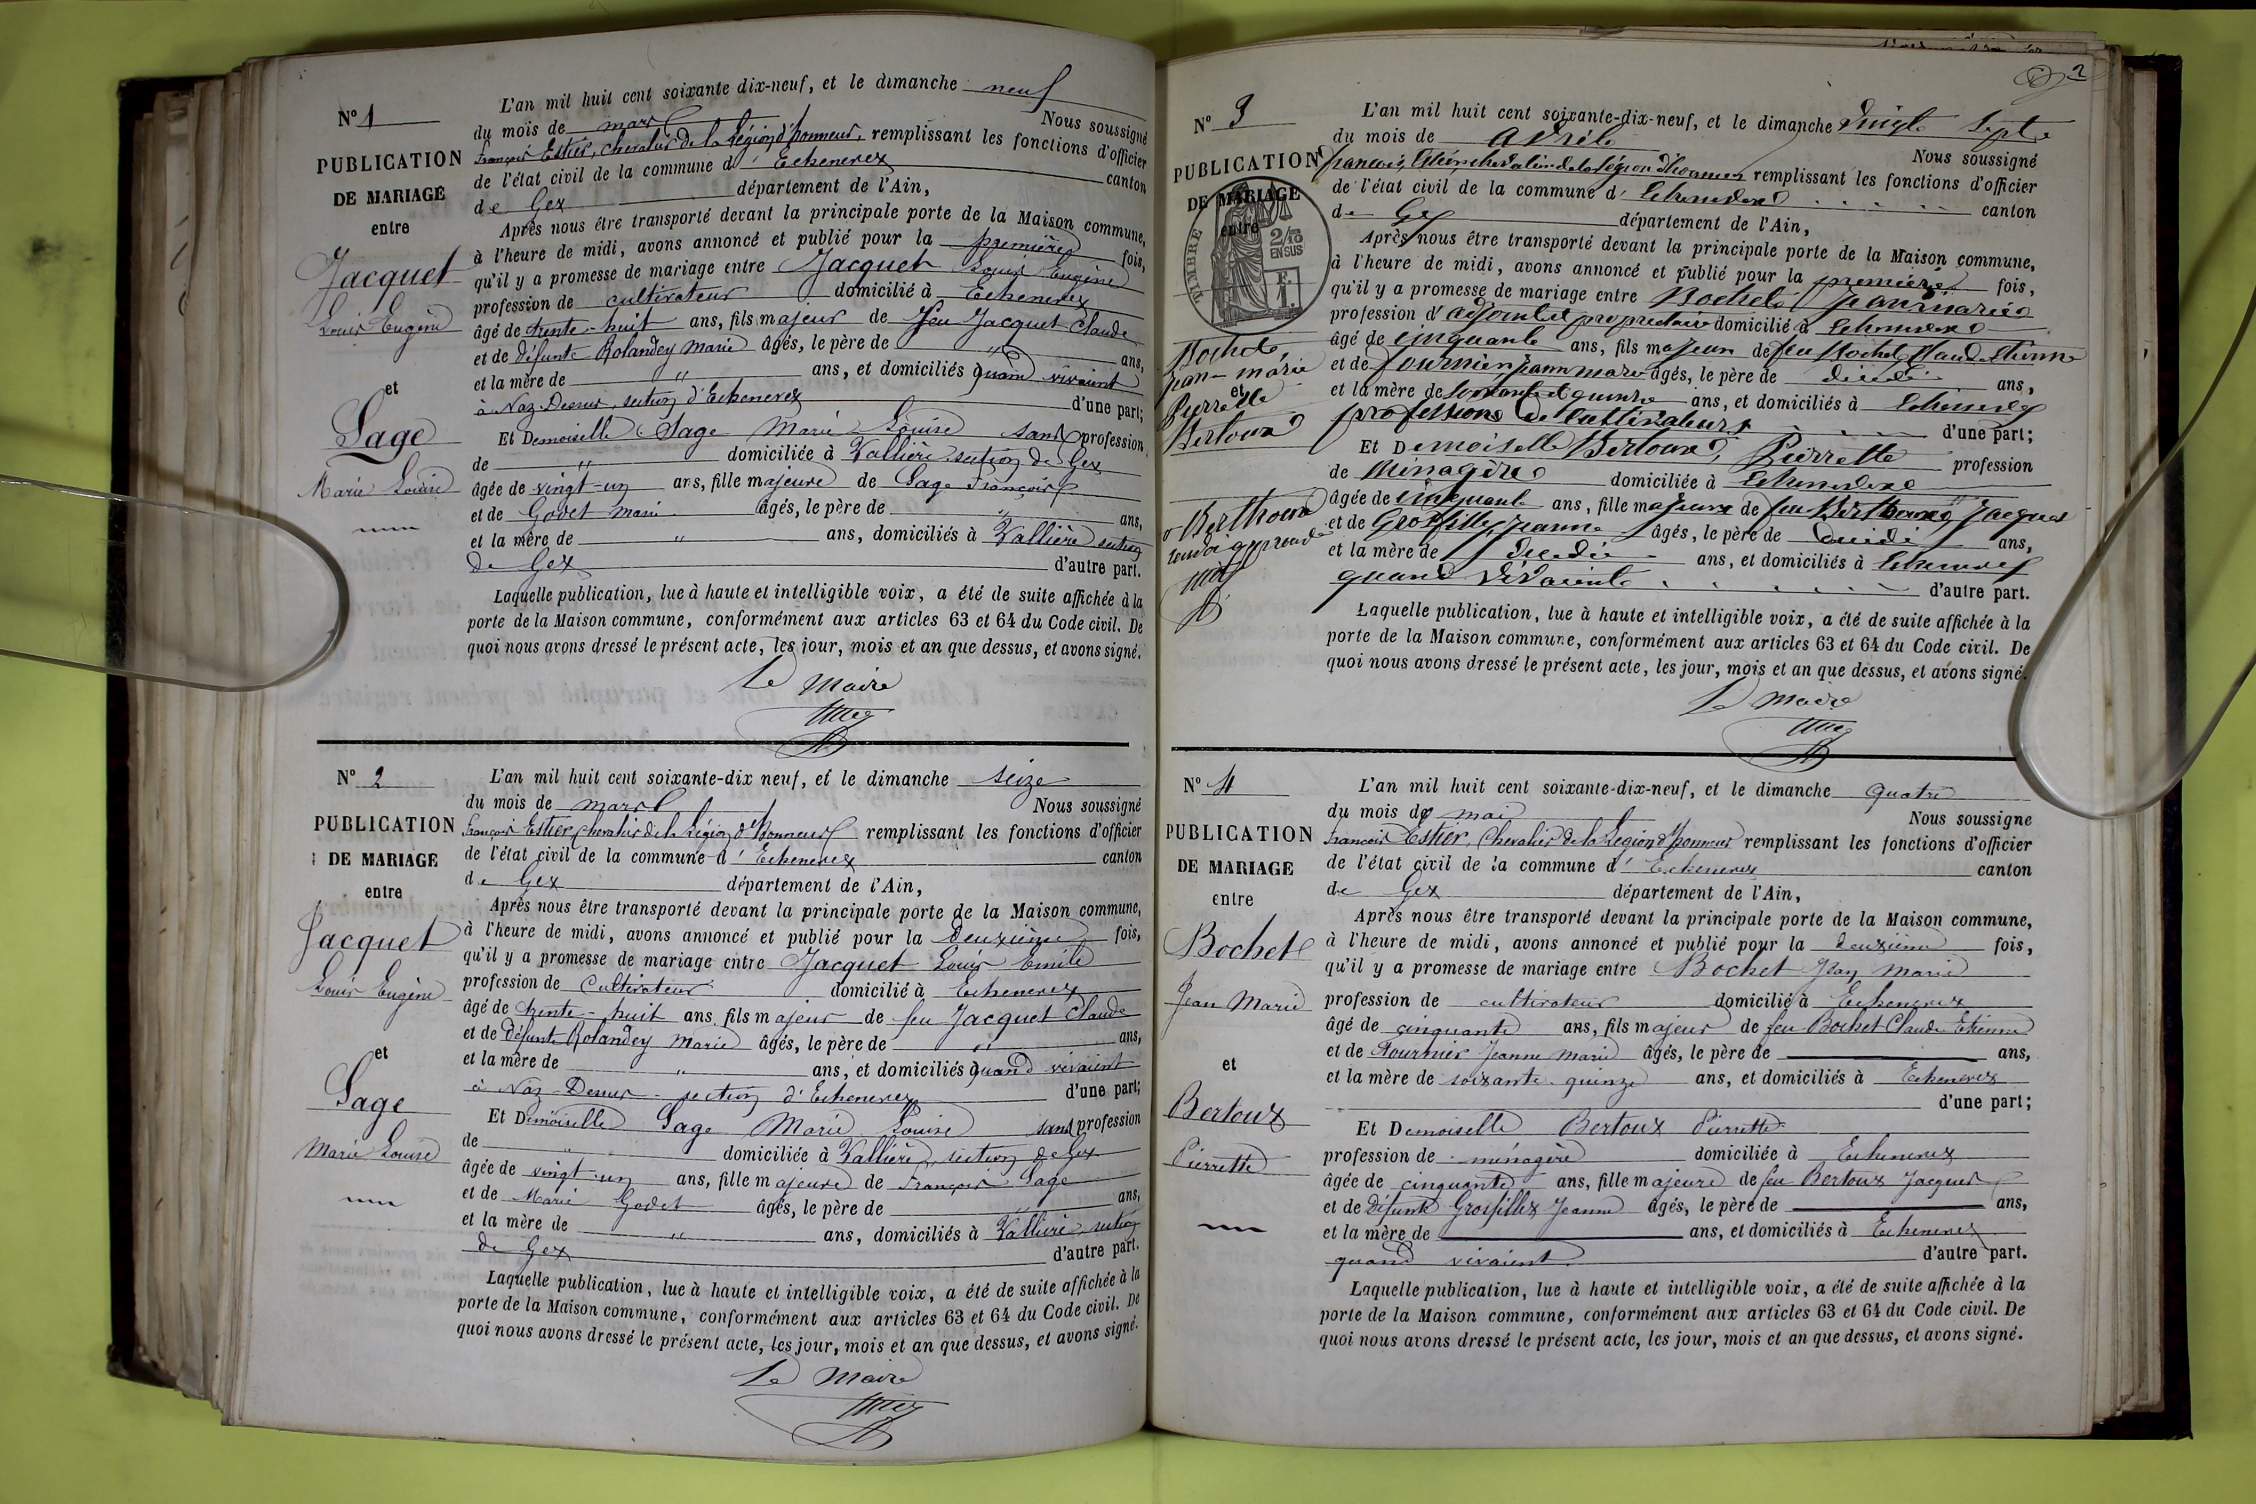 N° 1
PUBLICATION
DE MARIAGE
entre
Jacquet
Louis Eugène
et
Sage
Marie Louise
L'an mil huit cent soixante dix-neuf, et le dimanche neuf
du mois de mars Nous soussigné
François Estier, chevalier de la Légion d'honneur, remplissant les fonctions d'officier
de l'état civil de la commune d'Echenevex canton
de Gex département de l'Ain,
Après nous être transporté devant la principale porte de la Maison commune,
à l'heure de midi, avons annoncé et publié pour la première fois,
qu'il y a promesse de mariage entre Jacquet Louis Eugène
profession de cultivateur domicilié à Echenevex
âgé de trente-huit ans, fils majeur de feu Jacquet Claude
et de défunte Rolandey Marie âgés, le père de " ans,
et la mère de " ans, et domiciliés quand vivaient
à Naz-Dessus, section d'Echenevex d'une part;
Et Demoiselle Sage Marie Louise sans profession
de " domiciliée à Vallière section de Gex
âgée de vingt-un ans, fille majeure de Sage François
et de Godet Marie âgés, le père de " ans,
et la mère de " ans, domiciliés à Vallière section
de Gex d'autre part.
Laquelle publication, lue à haute et intelligible voix, a été de suite affichée à la
porte de la Maison commune, conformément aux articles 63 et 64 du Code civil. De
quoi nous avons dressé le présent acte, les jour, mois et an que dessus, et avons signé.
Le Maire
N° 2
PUBLICATION
DE MARIAGE
entre
Jacquet
Louis Eugène
et
Sage
Marie Louise
L'an mil huit cent soixante-dix neuf, et le dimanche seize
du mois de mars Nous soussigné
François Estier, chevalier de la Légion d'Honneur remplissant les fonctions d'officier
de l'état civil de la commune d'Echenevex canton
de Gex département de l'Ain,
Après nous être transporté devant la principale porte de la Maison commune,
à l'heure de midi, avons annoncé et publié pour la deuxième fois,
qu'il y a promesse de mariage entre Jacquet Louis Emile
profession de cultivateur domicilié à Echenevex
âgé de trente-huit ans, fils majeur de feu Jacquet Claude
et de défunte Rolandey Marie âgés, le père de " ans,
et la mère de " ans, et domiciliés quand vivaient
à Naz-Dessus - section d'Echenevex d'une part;
Et Demoiselle Sage Marie Louise sans profession
de " domiciliée à Vallière, section de Gex
âgée de vingt-un ans, fille majeure de François Sage
et de Marie Godet âgés, le père de " ans,
et la mère de " ans, domiciliés à Vallière, section
de Gex d'autre part.
Laquelle publication, lue à haute et intelligible voix, a été de suite affichée à la
porte de la Maison commune, conformément aux articles 63 et 64 du Code civil. De
quoi nous avons dressé le présent acte, les jour, mois et an que dessus, et avons signé.
Le Maire
2
N° 3
PUBLICATION
DE MARIAGE
entre
TIMBRE
2/10
EN SUS
F.
1.
Bochet
jean-marie
et
Pierrette
Bertoux
Berthoux
L'an mil huit cent soixante-dix-neuf, et le dimanche vingt sept
du mois de avril Nous soussigné
françois Estier, chevalier de la légion d'honneur remplissant les fonctions d'officier
de l'état civil de la commune d'Echenevex canton
de Gex département de l'Ain,
Après nous être transporté devant la principale porte de la Maison commune,
à l'heure de midi, avons annoncé et publié pour la première fois,
qu'il y a promesse de mariage entre Bochet jean marie
profession d'adjoint et propriétaire domicilié à Echenevex
âgé de cinquante ans, fils majeur de feu Bochet Claude Etienne
et de fournier jeann marie âgés, le père de décédé ans,
et la mère de soixante et quinze ans, et domiciliés à Echenevex
professions de cultivateurs d'une part;
Et Demoiselle Bertoux, Pierrette profession
de Ménagère domiciliée à Echenevex
âgée de cinquante ans, fille majeure de feu Berthoux Jacques
et de Grosfillex, jeanne âgés, le père de décédé ans,
et la mère de décédée ans, et domiciliés à Echenevex
quand vivaient d'autre part.
Laquelle publication, lue à haute et intelligible voix, a été de suite affichée à la
porte de la Maison commune, conformément aux articles 63 et 64 du Code civil. De
quoi nous avons dressé le présent acte, les jour, mois et an que dessus, et avons signé.
Le Maire
N° 4
PUBLICATION
DE MARIAGE
entre
Bochet
Jean Marie
et
Bertoux
Pierrette
L'an mil huit cent soixante-dix-neuf, et le dimanche quatre
du mois de mai Nous soussigné
François Estier, Chevalier de la Légion d'honneur remplissant les fonctions d'officier
de l'état civil de la commune d'Echenevex canton
de Gex département de l'Ain,
Après nous être transporté devant la principale porte de la Maison commune,
à l'heure de midi, avons annoncé et publié pour la deuxième fois,
qu'il y a promesse de mariage entre Bochet Jean Marie
profession de cultivateur domicilié à Echenevex
âgé de cinquante ans, fils majeur de feu Bochet Claude Etienne
et de Fournier Jeanne Marie âgés, le père de ans,
et la mère de soixante-quinze ans, et domiciliés à Echenevex
d'une part;
Et Demoiselle Bertoux Pierrette
profession de ménagère domiciliée à Echenevex
âgée de cinquante ans, fille majeure de feu Bertoux Jacques
et de défunte Grosfillex Jeanne âgés, le père de ans,
et la mère de ans, et domiciliés à Echenevex
quand vivaient d'autre part.
Laquelle publication, lue à haute et intelligible voix, a été de suite affichée à la
porte de la Maison commune, conformément aux articles 63 et 64 du Code civil. De
quoi nous avons dressé le présent acte, les jour, mois et an que dessus, et avons signé.